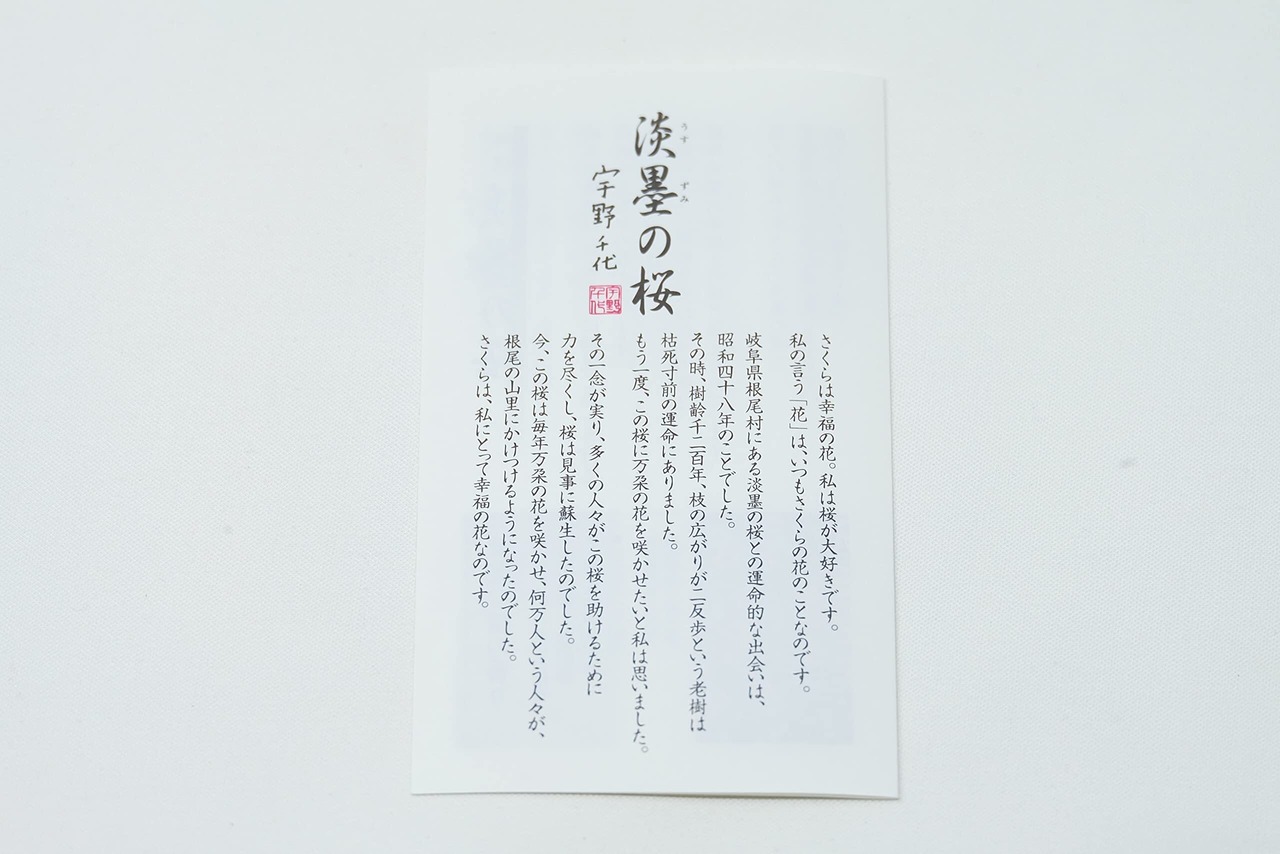 淡墨の桜
うす
ずみ
宇野千代
宇野千代
さくらは幸福の花。私は桜が大好きです。
私の言う「花」は、いつもさくらの花のことなのです。
岐阜県根尾村にある淡墨の桜との運命的な出会いは、
昭和四十八年のことでした。
その時、樹齢千二百年、枝の広がりが二反歩という老樹は
枯死寸前の運命にありました。
もう一度、この桜に万朶の花を咲かせたいと私は思いました。
その一念が実り、多くの人々がこの桜を助けるために
力を尽くし、桜は見事に蘇生したのでした。
今、この桜は毎年万朶の花を咲かせ、何万人という人々が、
根尾の山里にかけつけるようになったのでした。
さくらは、私にとって幸福の花なのです。